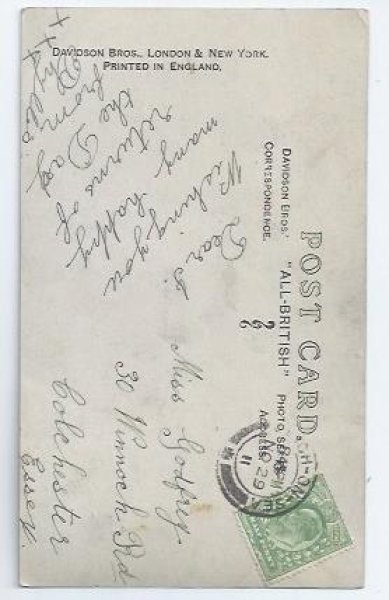 DAVIDSON BROS., LONDON & NEW YORK.
PRINTED IN ENGLAND.
POST CARD.
"ALL-BRITISH" PHOTO. SERIES
DAVIDSON BROS.'
CORRESPONDENCE.
ADDRESS.
Dear
Wishing you
many happy
returns of
the Day
from
Phyllis
x x x
Miss Godfrey
30 Winnock Rd
Colchester
Essex.
NO 29
11